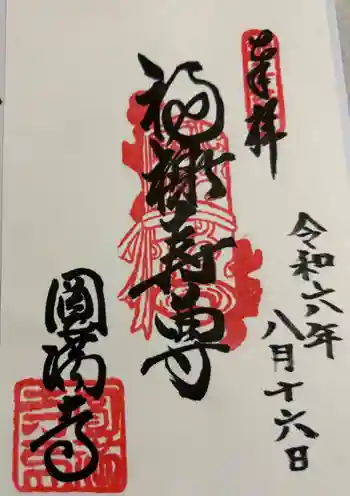 奉拝
令和六年
八月十六日
福樹寿尊
圓満寺